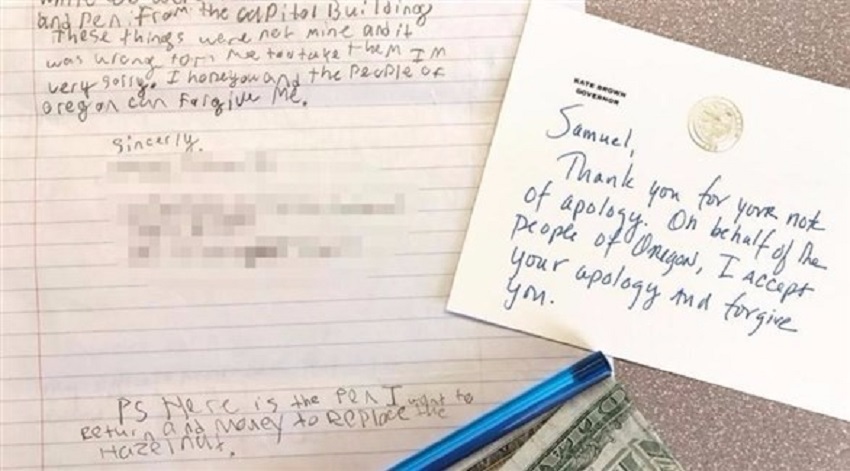 and Pen From the capitol Building
These things were not mine and it
was wrong for me to take them I'm
very sorry. I hope you and the People of
oregon can Forgive Me.
Sincerly.
PS Here is the Pen I want to
return and Money to Replace the
Hazelnut.
KATE BROWN
GOVERNOR
Samuel,
Thank you for your not
of apology. On behalf of the
people of Oregon, I accept
your apology and forgive
you.